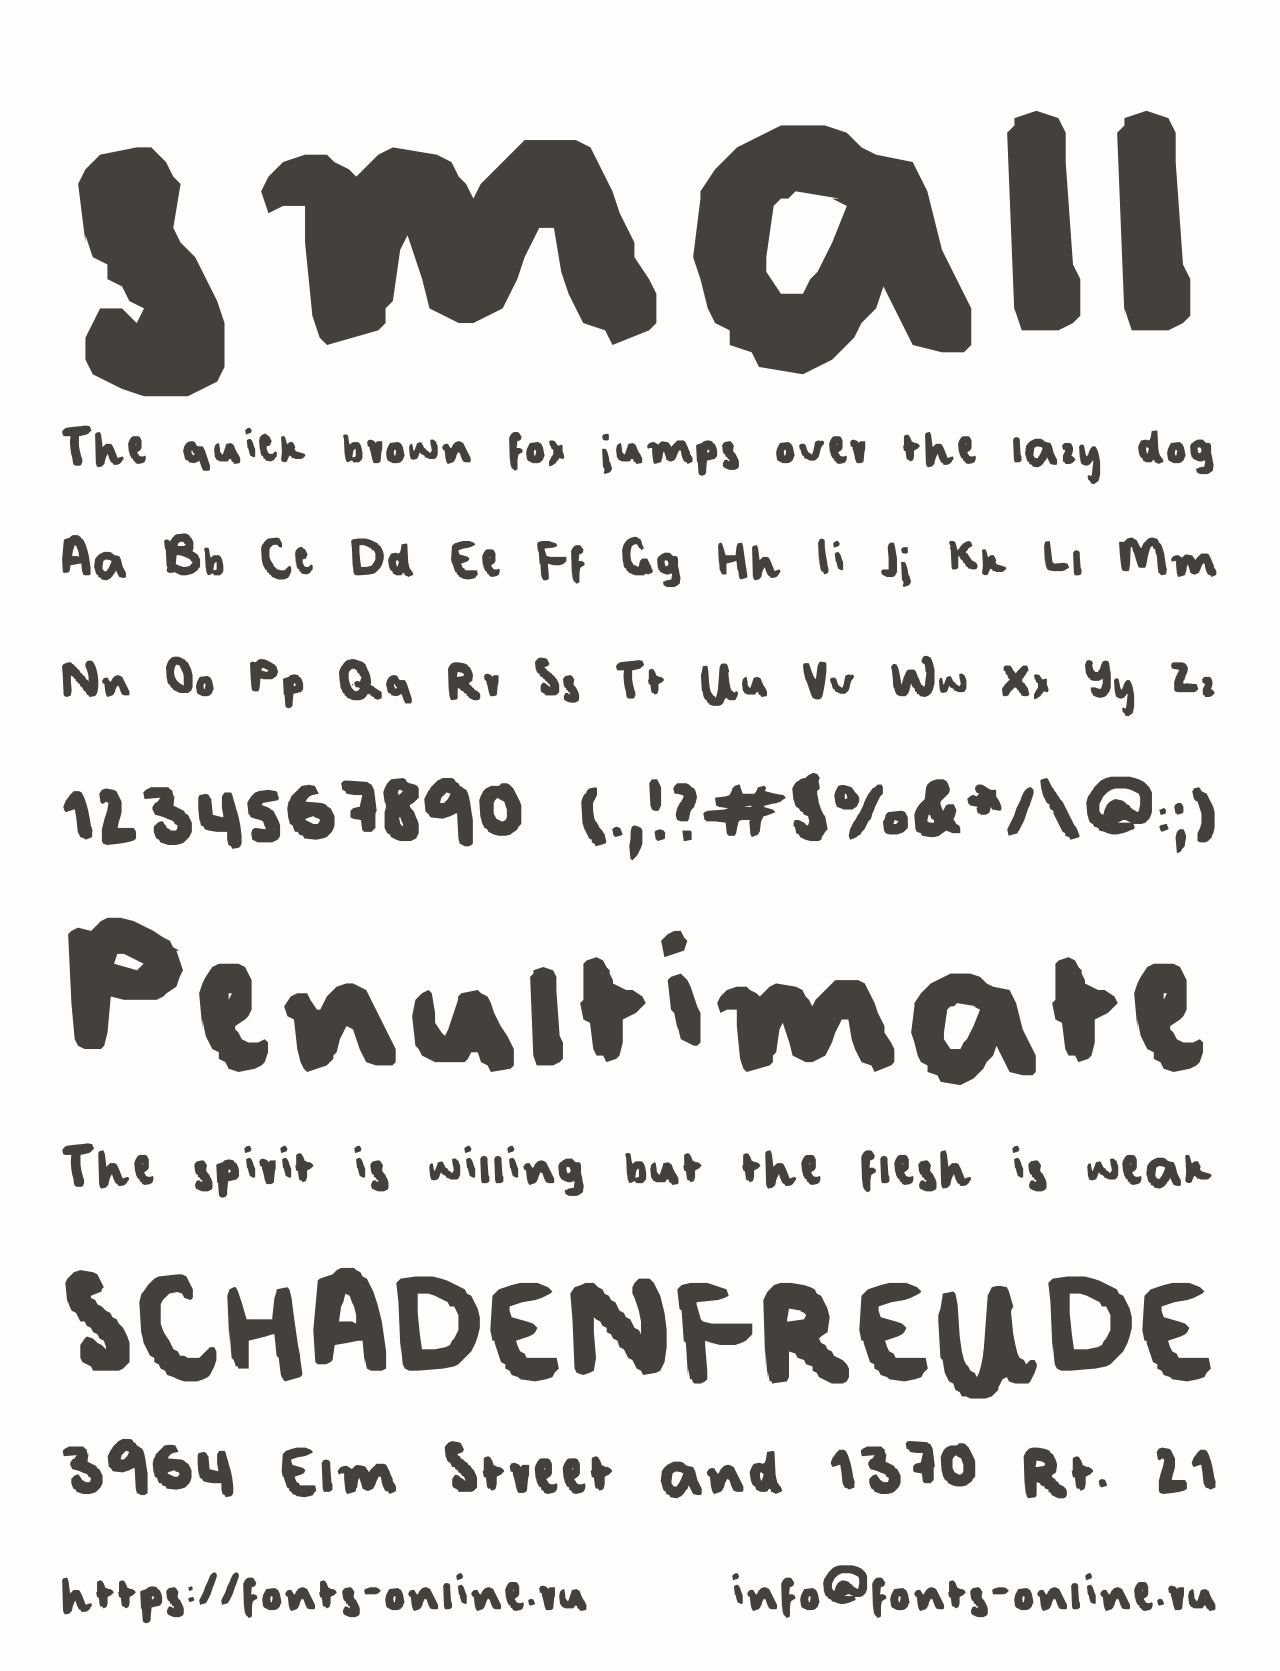 small
The quick brown fox jumps over the lazy dog
Aa Bb Cc Dd Ee Ff Gg Hh Ii Jj Kk Ll Mm
Nn Oo Pp Qq Rr Ss Tt Uu Vv Ww Xx Yy Zz
1234567890 (.,!?#$%&*/\@:;)
Penultimate
The spirit is willing but the flesh is weak
SCHADENFREUDE
3964 Elm Street and 1370 Rt. 21
https://fonts-online.ru info@fonts-online.ru